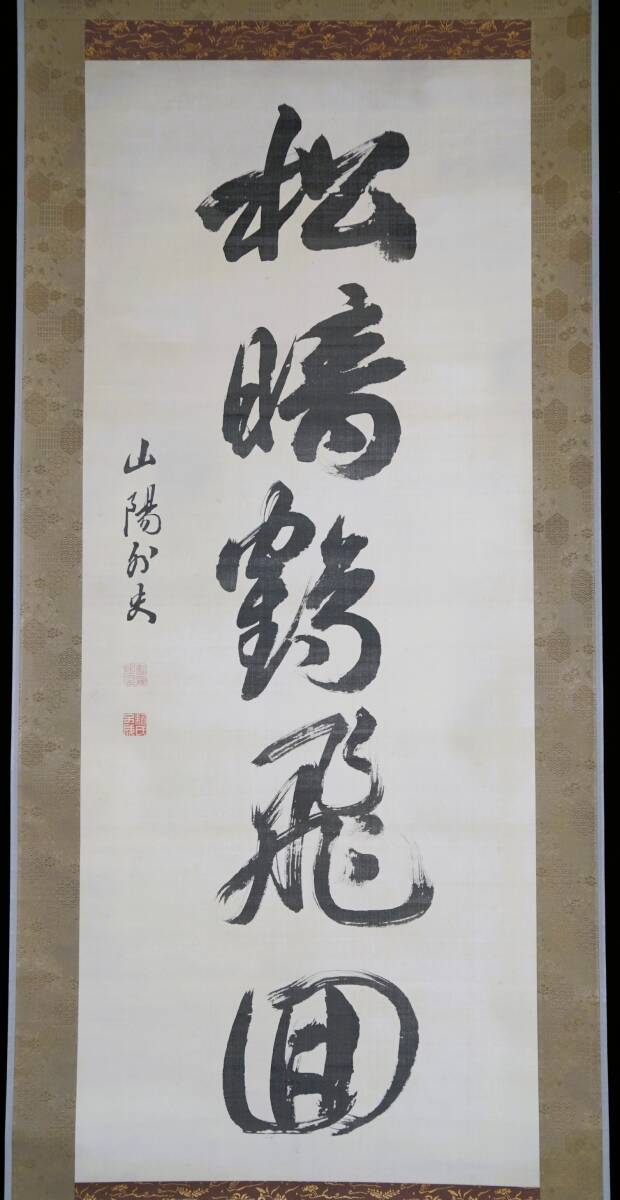 松暗鶴飛回
山陽外史